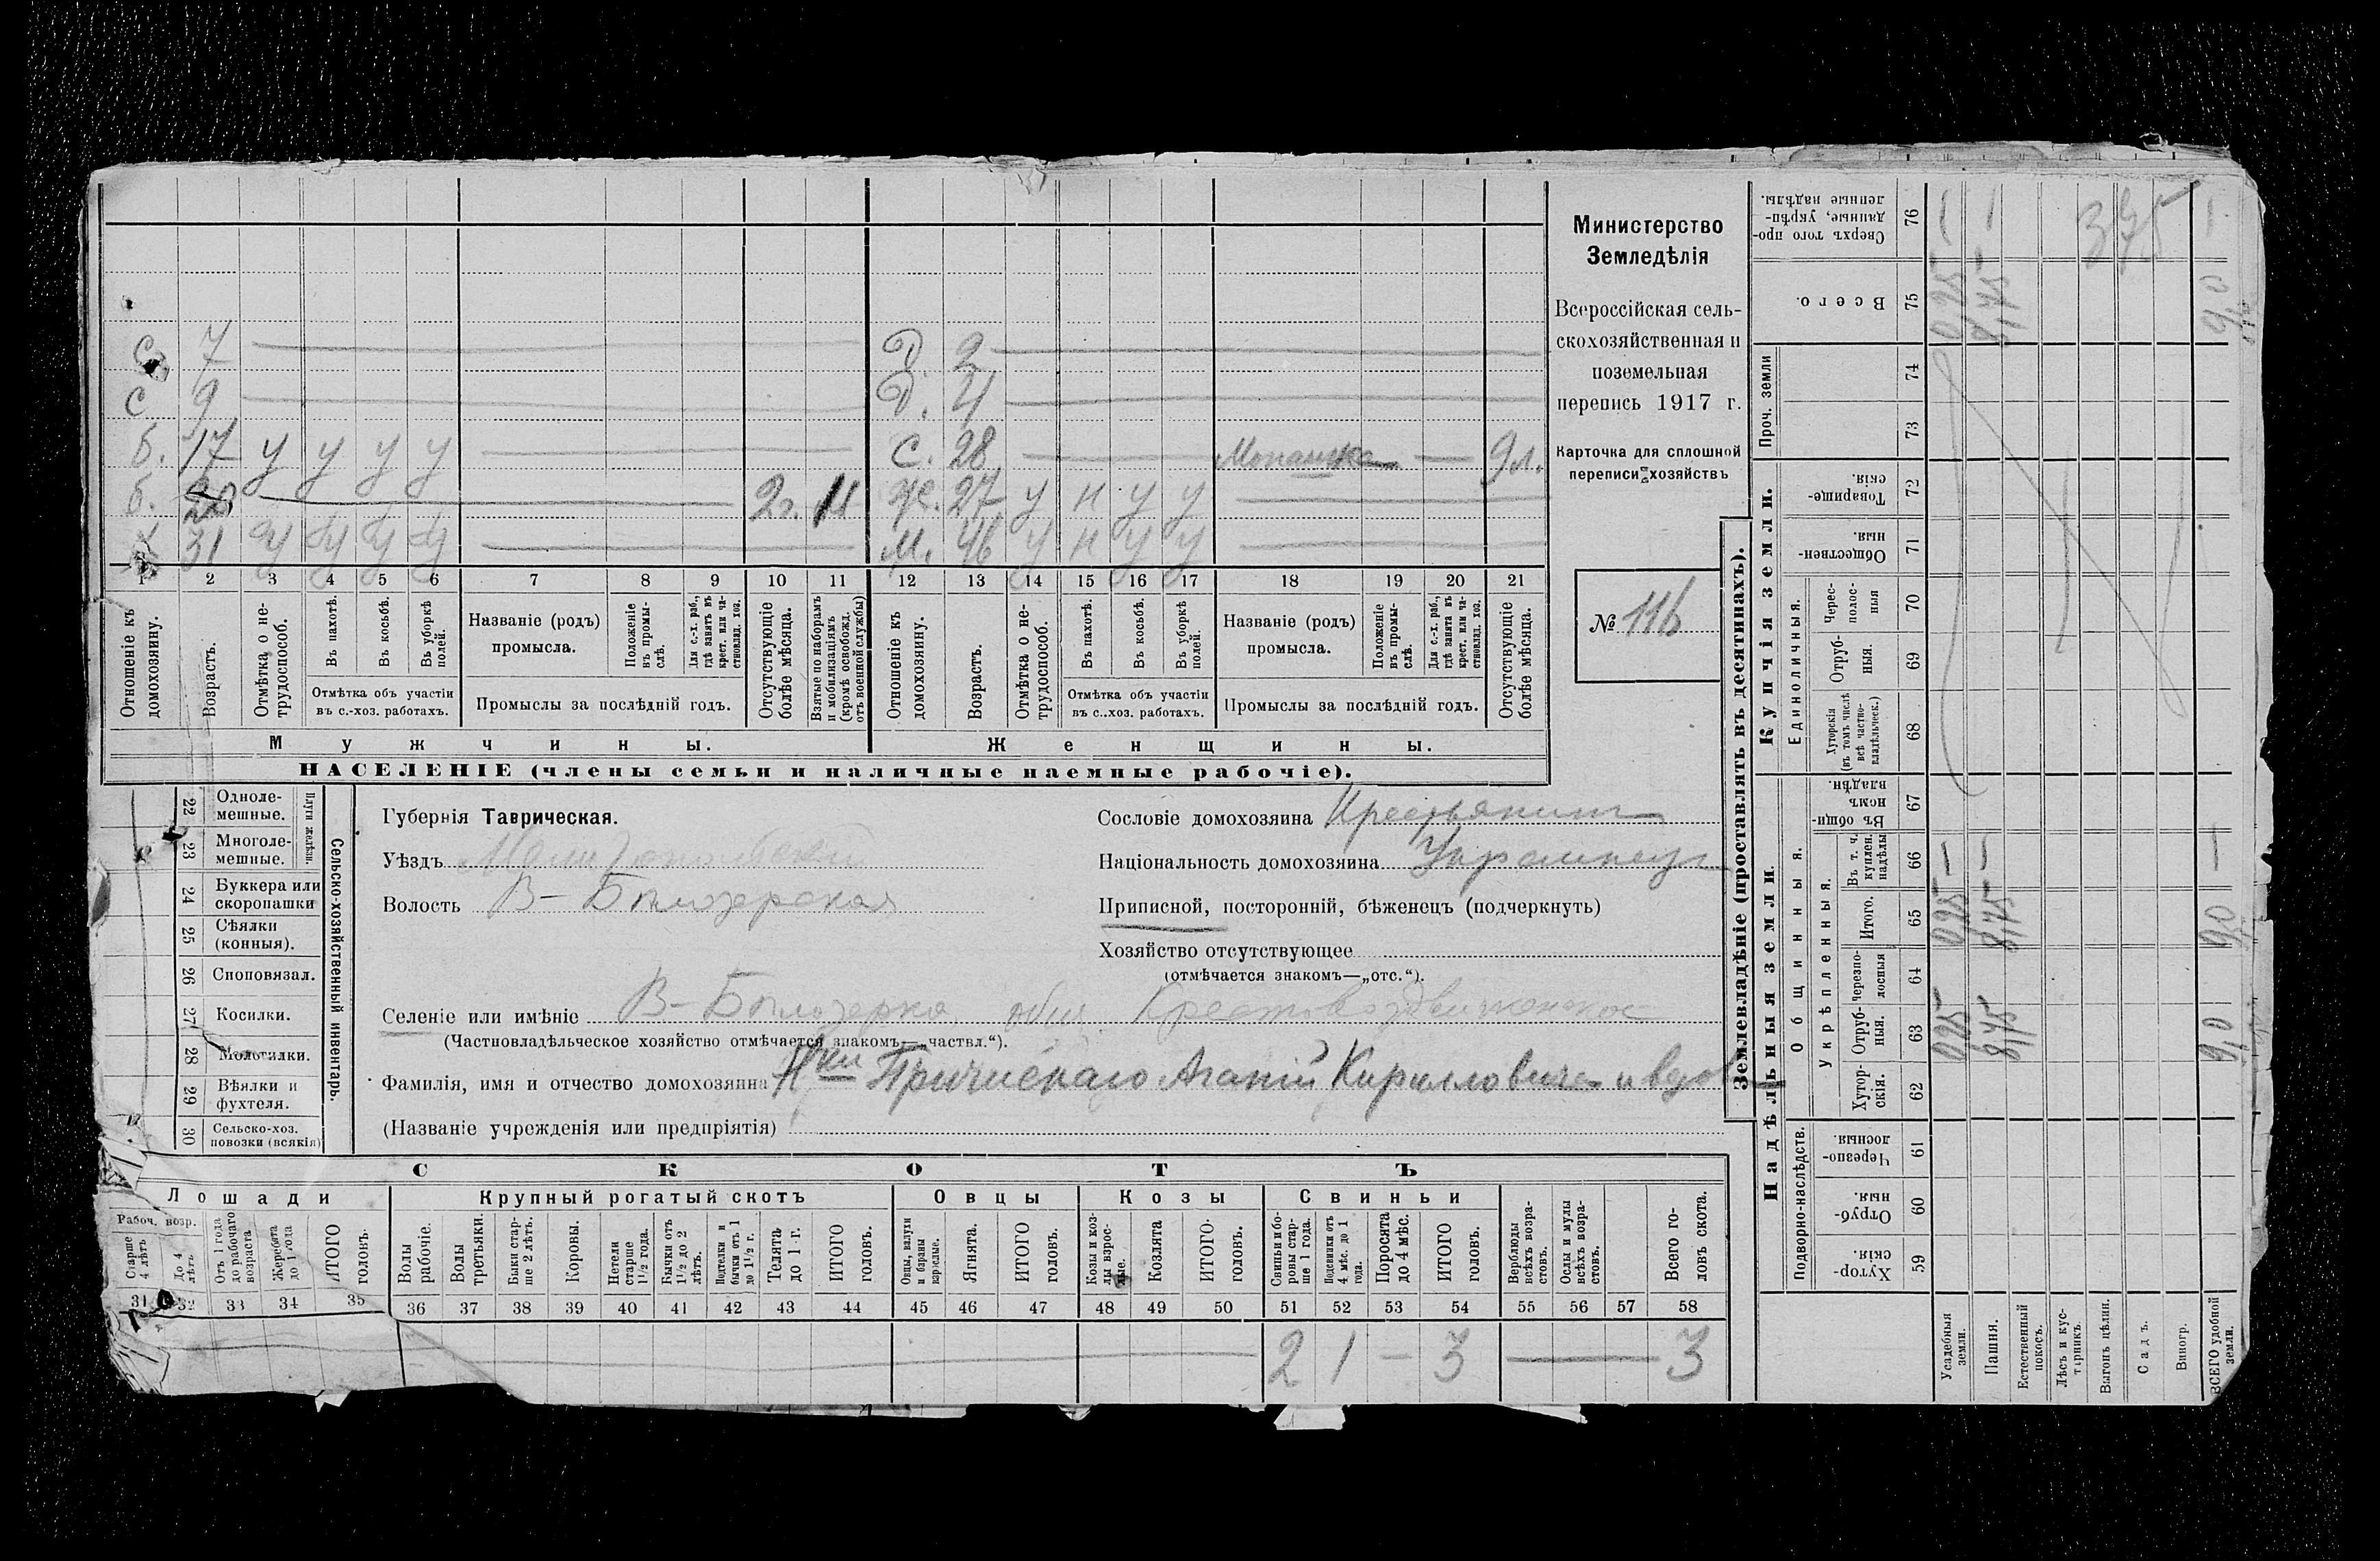 С 7 — Д. 2 —
С 9 — Д. 4 —
б. 17 у у у у — С. 28 — Монашка — 9л.
б. 20 — 2г. 11 Ж. 27 у н у у —
Х 31 у у у у — М. 46 у н у у —
1 2 3 4 5 6 7 8 9 10 11 12 13 14 15 16 17 18 19 20 21
Отношеніе къ домохозяину.
Возрастъ.
Отмѣтка о не-трудоспособ.
Въ пахотѣ.
Въ косьбѣ.
Въ уборкѣ полей.
Отмѣтка объ участіи
въ с.-хоз. работахъ.
Названіе (родъ)
промысла.
Положеніе въ промы-слѣ.
Для с.-х. раб., гдѣ занятъ въ крест. или ча-стновлад. хоз.
Промыслы за послѣдній годъ.
Отсутствующіе болѣе мѣсяца.
Взятые по наборамъ и мобилизаціямъ (кромѣ освобожд. отъ военной службы)
Отношеніе къ домохозяину.
Возрастъ.
Отмѣтка о не-трудоспособ.
Въ пахотѣ.
Въ косьбѣ.
Въ уборкѣ полей.
Отмѣтка объ участіи
въ с..хоз. работахъ.
Названіе (родъ)
промысла.
Положеніе въ промы-слѣ.
Для с.-х. раб., гдѣ занята въ крест. или ча-стновлад. хоз.
Промыслы за послѣдній годъ.
Отсутствующіе болѣе мѣсяца.
Мужчины. Женщины.
НАСЕЛЕНІЕ (члены семьи и наличные наемные рабочіе).
Министерство
Земледѣлія
Всероссійская сель-
скохозяйственная и
поземельная
перепись 1917 г.
Карточка для сплошной
переписи хозяйствъ
№ 116
22 Одноле-мешные.
23 Многоле-мешные.
Плуги желѣзн.
24 Буккера или скоропашки
25 Сѣялки (конныя).
26 Споповязал.
27 Косилки.
28 Молотилки.
29 Вѣялки и фухтеля.
30 Сельско-хоз. повозки (всякія)
Сельско-хозяйственный инвентарь.
Губернія Таврическая.
Уѣздъ Мелитопольскій
Волость В-Бѣлозерская
Сословіе домохозяина Крестьянинъ
Національность домохозяина Украинецъ
Приписной, посторонній, бѣженецъ (подчеркнуть)
Хозяйство отсутствующее
(отмѣчается знакомъ—„отс.“).
Селеніе или имѣніе В-Бѣлозерка, общ. Крестовоздвиженское
(Частновладѣльческое хозяйство отмѣчается знакомъ—„частвл.“).
Фамилія, имя и отчество домохозяина Н-ки Кирилловича и вдов
(Названіе учрежденія или предпріятія)
СКОТЪ
Лошади Крупный рогатый скотъ Овцы Козы Свиньи
Рабоч. возр.
Старше 4 лѣтъ
До 4 лѣтъ
Отъ 1 года до рабочаго возраста
Жеребята до 1 года
ИТОГО головъ.
Волы рабочіе.
Волы третьяки.
Быки стар-ше 2 лѣтъ.
Коровы.
Нетели старше 1½ года.
Бычки отъ 1½ до 2 лѣтъ.
Подтелки и бычки отъ 1 до 1½ г.
Телята до 1 г.
ИТОГО головъ.
Овцы, валухи и бараны взрослые.
Ягнята.
ИТОГО головъ.
Козы и коз-лы взрос-лые.
Козлята
ИТОГО головъ.
Свиньи и бо-ровы стар-ше 1 года.
Подсвинки отъ 4 мѣс. до 1 года.
Поросята до 4 мѣс.
ИТОГО головъ.
Верблюды всѣхъ возра-стовъ.
Ослы и мулы всѣхъ возра-стовъ.
Всего го-ловъ скота.
31 32 33 34 35 36 37 38 39 40 41 42 43 44 45 46 47 48 49 50 51 52 53 54 55 56 57 58
2 1 — 3 — 3
Землевладѣніе (проставлять въ десятинахъ).
Надѣльныя земли. Купчія земли. Проч. земли
Подворно-наслѣдств.
Общинныя.
Укрѣпленныя.
Единоличныя.
Хутор-скія. 59
Отруб-ныя. 60
Черезпо-лосныя. 61
Хутор-скія. 62
Отруб-ныя. 63
Черезпо-лосныя 64
Итого. 65
Въ т. ч. куплен. надѣлы 66
Въ общи-номъ владѣн. 67
Хуторскія (въ томъ числѣ всѣ частно-владѣльческ.) 68
Отруб-ныя. 69
Черес-полос-ныя 70
Обществен-ныя. 71
Товарище-скія. 72
73
74
Всего. 75
Сверхъ того про-данные, укрѣп-ленные надѣлы. 76
Усадебныя земли. 0,25 0,25 — 0,25 —
Пашня. 8,75 8,75 — 8,75 —
Естественный покосъ.
Лѣсъ и кус-тарникъ.
Выгонъ цѣлин. 375
Садъ.
Виногр.
ВСЕГО удобной земли. 9,0 9,0 — 9,0